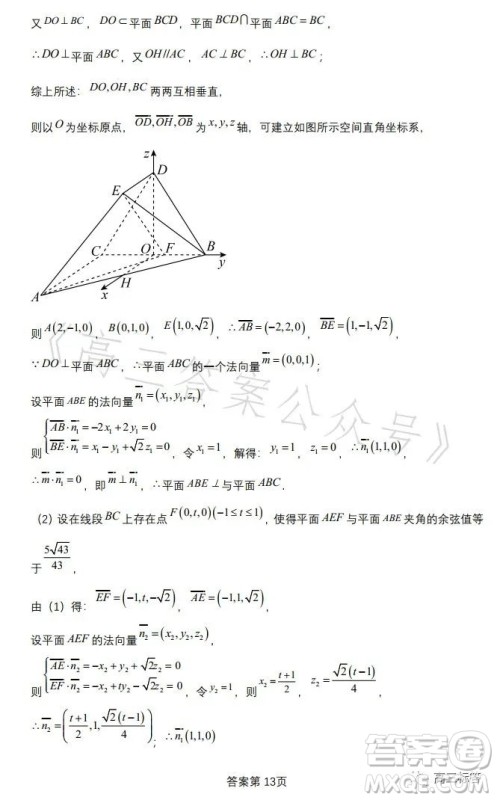 又 DO⊥BC，DO⊂平面 BCD，平面 BCD∩平面 ABC=BC，
∴DO⊥平面 ABC，又 OH//AC，AC⊥BC，∴OH⊥BC；
综上所述：DO,OH,BC 两两互相垂直，
则以 O 为坐标原点，\overline{OD},\overline{OH},\overline{OB} 为 x,y,z 轴，可建立如图所示空间直角坐标系，
z
D
E
C
O
F
B
y
H
A
x
则 A(2,-1,0)，B(0,1,0)，E(1,0,√2)，∴\overline{AB}=(-2,2,0)，\overline{BE}=(1,-1,√2)，
∵DO⊥平面 ABC，∴平面 ABC 的一个法向量 \overline{m}=(0,0,1)；
设平面 ABE 的法向量 \overline{n_1}=(x_1,y_1,z_1)，
则 {\overline{AB}·\overline{n_1}=-2x_1+2y_1=0
\overline{BE}·\overline{n_1}=x_1-y_1+√2z_1=0，令 x_1=1，解得：y_1=1，z_1=0，∴\overline{n_1}(1,1,0)
∴\overline{m}·\overline{n_1}=0，即 \overline{m}⊥\overline{n_1}，∴平面 ABE⊥与平面 ABC．
（2）设在线段 BC 上存在点 F(0,t,0)(-1≤t≤1)，使得平面 AEF 与平面 ABE 夹角的余弦值等
于 5√43/43，
由（1）得：\overline{EF}=(-1,t,-√2)，\overline{AE}=(-1,1,√2)，
设平面 AEF 的法向量 \overline{n_2}=(x_2,y_2,z_2)，
则 {\overline{AE}·\overline{n_2}=-x_2+y_2+√2z_2=0
\overline{EF}·\overline{n_2}=-x_2+ty_2-√2z_2=0，令 y_2=1，则 x_2=(t+1)/2，z_2=√2(t-1)/4，
∴\overline{n_2}=((t+1)/2,1,√2(t-1)/4)；∴\overline{n_1}(1,1,0)
答案第 13页
《高三答案公众号》
答案圈
MXQE.COM
高三标答